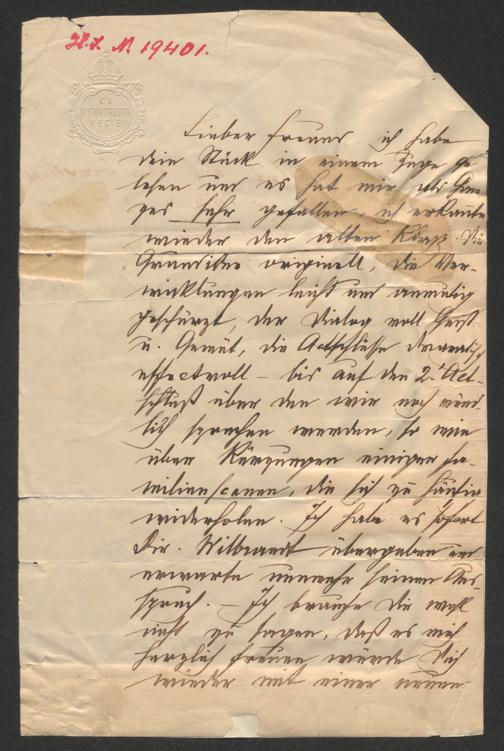 H.I. N. 19401.
K.K.
REGIE
Lieber Freund ich habe
dein Stück in einem Zuge ge
lesen und es hat mir als Gan
zes sehr gefallen, ich erkannte
wieder den alten Klaß. Die
Grundidee originell, die Ver-
wicklungen leicht und anmutig
geschürzt, der Dialog voll Geist
u. Gemüt, die Actschlüße dramatisch
effectvoll – bis auf den 2. Act-
schluß über den wir noch münd
lich sprechen werden, so wie
über Kürzungen einiger Fa-
milienscenen, die sich zu häufig
widerholen. Ich habe es sofort
Dir. Wilbrandt übergeben und
erwarte nunmehr seinen Aus
spruch. – Ich brauche dir wohl
nicht zu sagen, daß es mich
herzlich freuen würde dich
wieder mit einer neuen